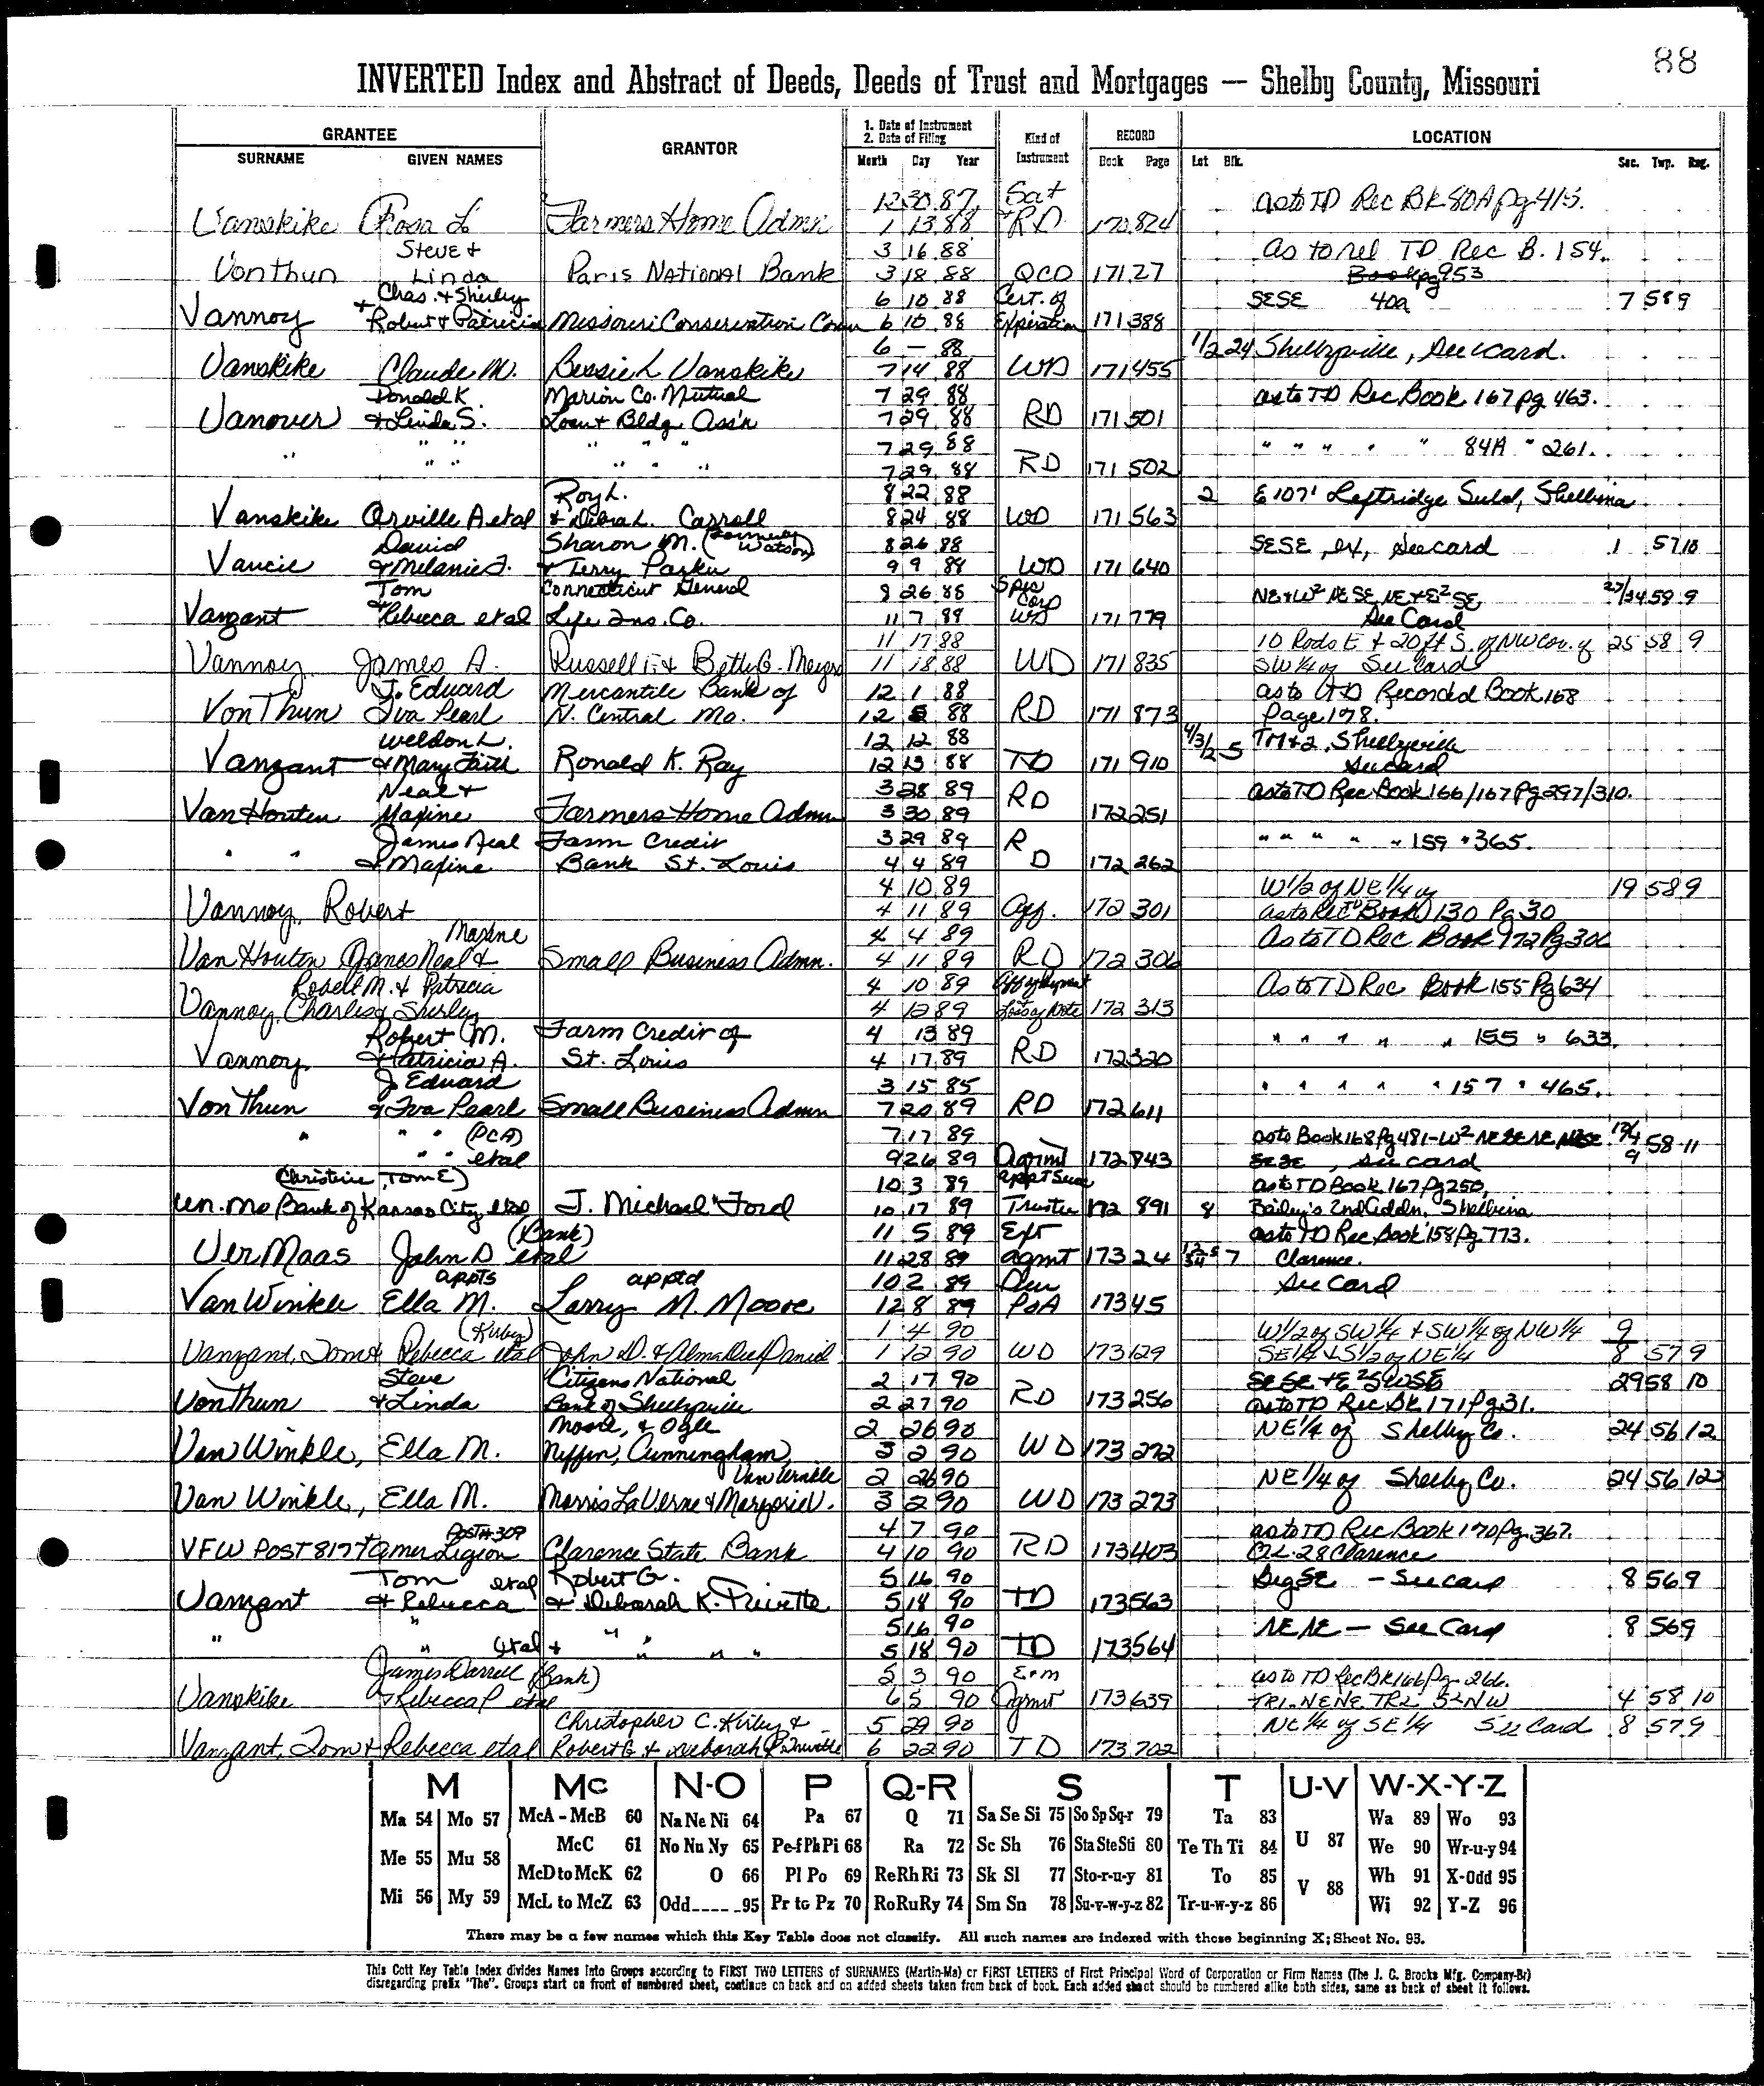 88
INVERTED Index and Abstract of Deeds, Deeds of Trust and Mortgages — Shelby County, Missouri
GRANTEE GRANTOR 1. Date of Instrument 2. Date of Filing Kind of Instrument RECORD LOCATION
SURNAME GIVEN NAMES Month Day Year Book Page Lot Blk. Sec. Twp. Rng.
12 30 87 Sat as to TD Rec Bk 80A pg 415.
Vanskike Rosa L Farmers Home Admn 1 13 88 RD 170 824
Steve & 3 16 88 as to rel TD Rec B. 154
VonThun Linda Paris National Bank 3 18 88 QCD 171 27 Book pg 953
Chas. & Shirley 6 10 88 Cert. of SESE 40a 7 58 9
Vannoy & Robert & Patricia Missouri Conservation Comm 6 10 88 Expiration 171 388
6 — 88 1/2 24 Shelbyville, See card.
Vanskike Claude M. Bessie L Vanskike 7 14 88 WD 171 455
Donald K. Marion Co. Mutual 7 29 88 as to TD Rec Book 167 pg 463.
Vanover & Linda S. Loan & Bldg Ass'n 7 29 88 RD 171 501
" " " " " " 7 29 88 " " " " " 84A " 261.
7 29 88 RD 171 502
Roy L. 8 22 88 2 E 107' Leftridge Subd, Shelbina
Vanskike Orville A etal & Debra L. Carroll 8 24 88 WD 171 563
David Sharon M. (formerly Watson) 8 26 88 SESE, ex, See card 1 57 10
Vancil & Melanie J. & Terry Parker 9 9 88 WD 171 640
Tom Connecticut General 8 26 88 Spec Corp NE & W² NESE, NE & E² SE 27/34 58 9
Vanzant & Rebecca etal Life Ins. Co. 11 7 88 WD 171 779 See Card
11 17 88 10 Rods E & 20 ft S. of NW Cor. of 25 58 9
Vannoy James A. Russell F. & Betty G. Meyers 11 18 88 WD 171 835 SW 1/4 of See Card
J. Edward Mercantile Bank of 12 1 88 as to TD Recorded Book 168
VonThun Iva Pearl N. Central Mo. 12 5 88 RD 171 873 Page 178.
Weldon L. 12 12 88 4/3/2 5 Shelbyville
Vanzant & Mary Faith Ronald K. Ray 12 13 88 TD 171 910 See card
Neal & 3 28 89 RD as to TD Rec Book 166/167 Pg 297/310.
VanHouten Maxine Farmers Home Admn 3 30 89 172 251
James Neal Farm Credit 3 29 89 R " " " " " 159 " 365.
" " & Maxine Bank St. Louis 4 4 89 D 172 262
4 10 89 W 1/2 of NE 1/4 of 19 58 9
Vannoy, Robert 4 11 89 Aff. 172 301 as to Rec TD Book 130 Pg 30
Maxine 4 4 89 As to TD Rec Book 172 Pg 306
Van Houten James Neal & Small Business Admn. 4 11 89 RD 172 306
Robert M. & Patricia 4 10 89 Aff of Payment As to TD Rec Book 155 Pg 634
Vannoy, Charles & Shirley 4 12 89 Loss of Note 172 313
Robert M. Farm Credit of 4 13 89 " " " " " 155 " 633.
Vannoy & Patricia A. St. Louis 4 17 89 RD 172 320
J Edward 3 15 85 " " " " " 157 " 465.
VonThun & Iva Pearl Small Business Admn 7 20 89 RD 172 611
" " " (PCA) 7 17 89 as to Book 168 Pg 481 - W² NESE NE 58 11
" " etal 9 26 89 Agrmt 172 843 SESE, See card
(Christine, Tom E) 10 3 89 Appt Succ as to TD Book 167 Pg 250,
Un. Mo Bank of Kansas City etal J. Michael Ford 10 17 89 Trustee 172 891 8 Bailey's 2nd Addn. Shelbina
(Bank) 11 5 89 Ext as to TD Rec Book 158 Pg 773.
VerMaas John D etal 11 28 89 agmt 173 24 7 Clarence.
appts apptd 10 2 89 Dur See Card
VanWinkle Ella M. Larry M. Moore 12 8 89 PoA 173 45
(Kirby) 1 4 90 W 1/2 of SW 1/4 & SW 1/4 of NW 1/4 9
Vanzant, Tom & Rebecca etal John D. & Alma Dee Daniel 1 12 90 WD 173 129 SE 1/4 & S 1/2 of NE 1/4 8 57 9
Steve Citizens National 2 17 90 SESE & E² SWSE 29 58 10
VonThun & Linda Bank of Shelbyville 2 27 90 RD 173 256 as to TD Rec Bk 171 Pg 31.
Moore, & Ogle 2 26 90 NE 1/4 of Shelby Co. 24 56 12
Van Winkle, Ella M. Niffen, Cunningham, 3 2 90 WD 173 272
Van Winkle 2 26 90 NE 1/4 of Shelby Co. 24 56 12
Van Winkle, Ella M. Morris LaVerne & Marjorie V. 3 2 90 WD 173 273
Post #309 4 7 90 as to TD Rec Book 170 Pg. 367.
VFW POST 8177 & Amer Legion Clarence State Bank 4 10 90 RD 173 403 OL. 28 Clarence
Tom etal Robert G. 5 16 90 Beg SE - See card 8 56 9
Vanzant & Rebecca & Deborah K. Privette 5 18 90 TD 173 563
" " " " 5 16 90 NENE — See Card 8 56 9
" etal & " " " 5 18 90 TD 173 564
James Darrell (Bank) 5 3 90 Exm as to TD Rec Bk 166 Pg. 266.
Vanskike & Rebecca P etal 6 5 90 Agrmt 173 639 TR1. NENE TR2 S2NW 4 58 10
Christopher C. Kirby & 5 29 90 NE 1/4 of SE 1/4 See Card 8 57 9
Vanzant, Tom & Rebecca etal Robert G & Deborah K Privette 6 22 90 TD 173 702
M Mc N-O P Q-R S T U-V W-X-Y-Z
Ma 54 Mo 57 McA - McB 60 Na Ne Ni 64 Pa 67 Q 71 Sa Se Si 75 So Sp Sq-r 79 Ta 83 U 87 Wa 89 Wo 93
Me 55 Mu 58 McC 61 No Nu Ny 65 Pe-f Ph Pi 68 Ra 72 Sc Sh 76 Sta Ste Sti 80 Te Th Ti 84 We 90 Wr-u-y 94
McD to McK 62 O 66 Pl Po 69 Re Rh Ri 73 Sk Sl 77 Sto-r-u-y 81 To 85 V 88 Wh 91 X-Odd 95
Mi 56 My 59 McL to McZ 63 Odd 95 Pr to Pz 70 Ro Ru Ry 74 Sm Sn 78 Su-v-w-y-z 82 Tr-u-w-y-z 86 Wi 92 Y-Z 96
There may be a few names which this Key Table does not classify. All such names are indexed with those beginning X; Sheet No. 95.
This Cott Key Table Index divides Names into Groups according to FIRST TWO LETTERS of SURNAMES (Martin-Ma) or FIRST LETTERS of First Principal Word of Corporation or Firm Names (The J. C. Brooks Mfg. Company-Br)
disregarding prefix "The". Groups start on front of numbered sheet, continue on back and on added sheets taken from back of book. Each added sheet should be numbered alike both sides, same as back of sheet it follows.